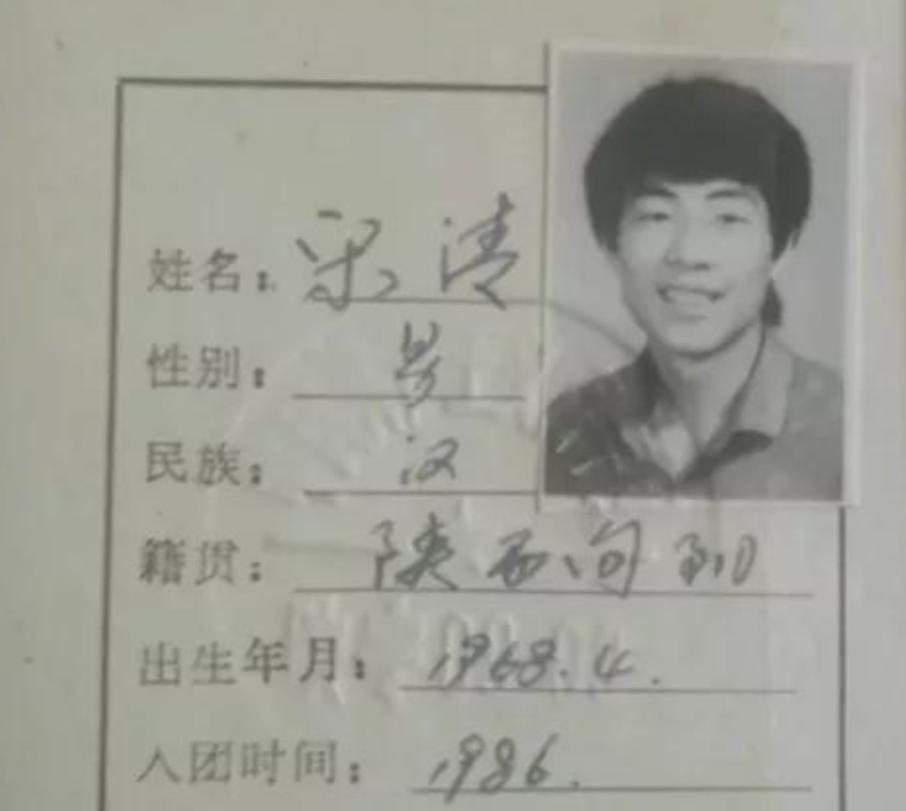 姓名：宋清
性别：男
民族：汉
籍贯：陕西洵阳
出生年月：1968.4.
入团时间：1986.